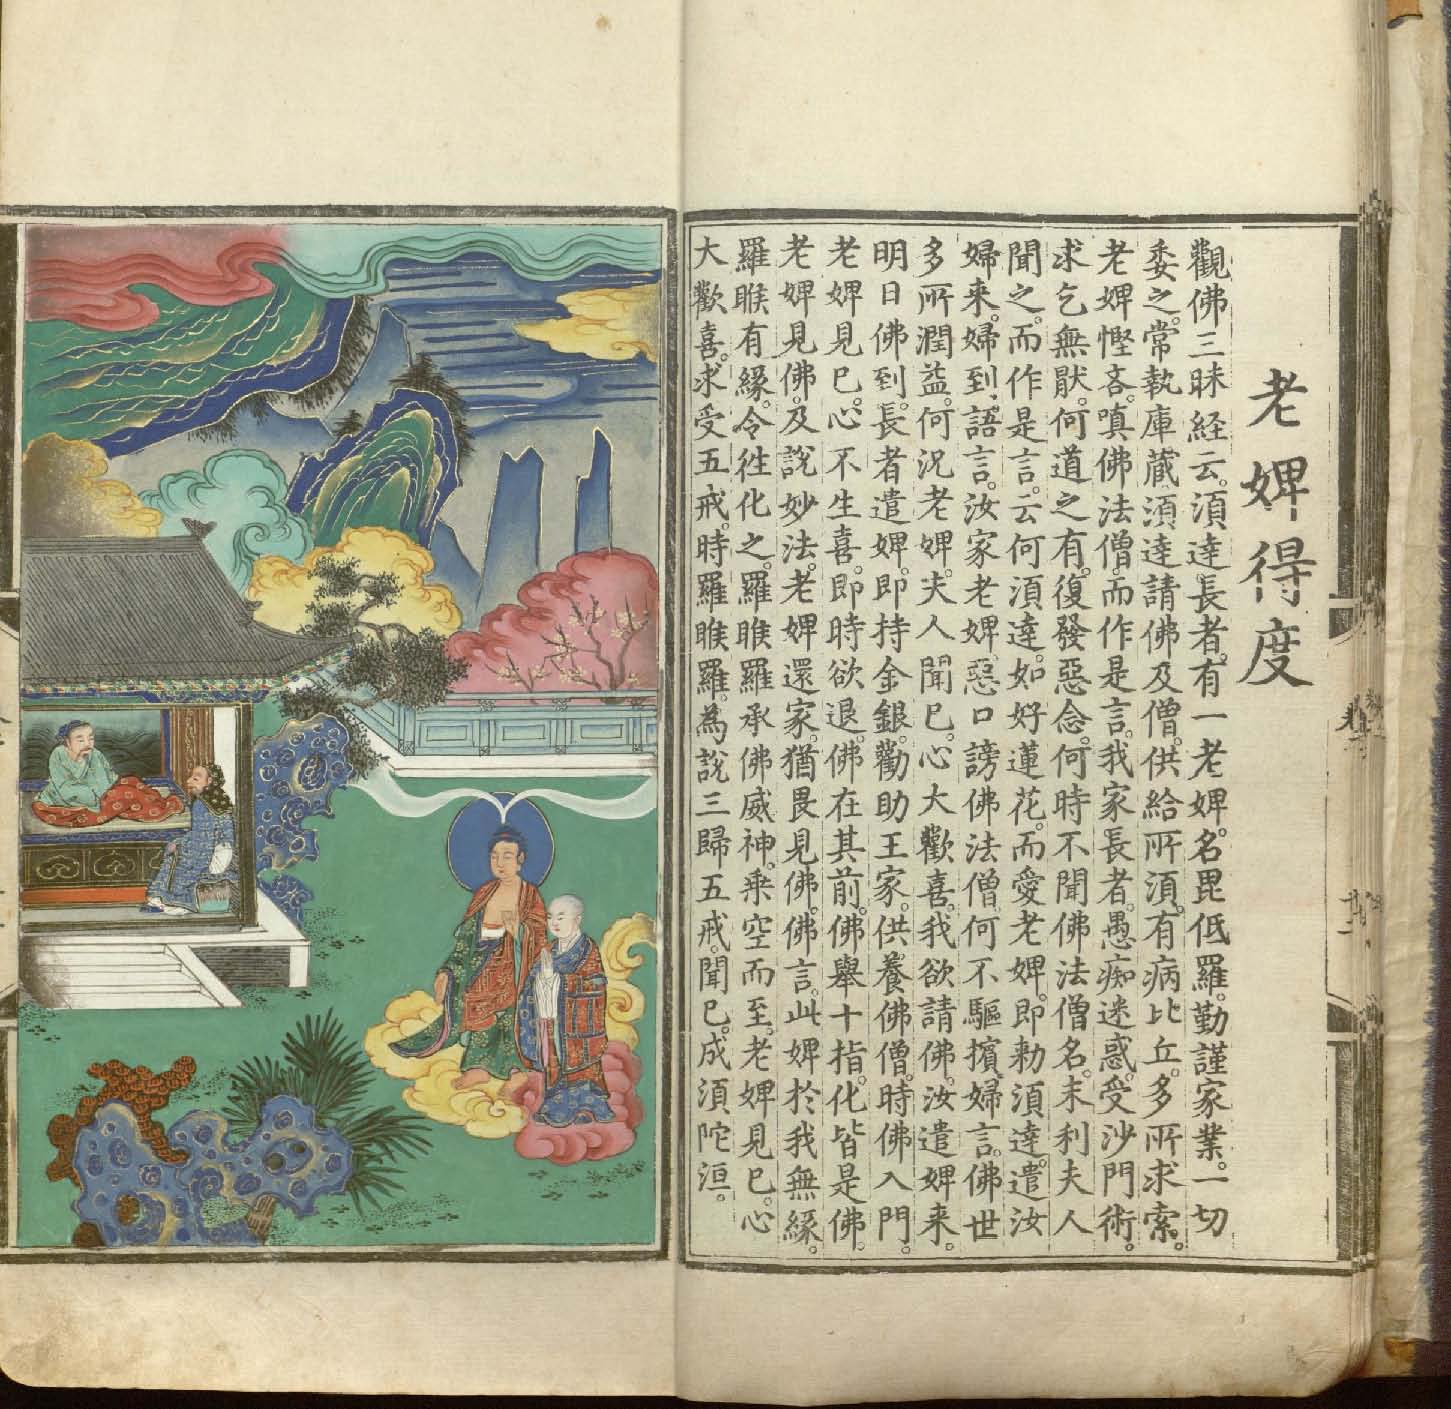 老婢得度
觀佛三昧経云。須達長者。有一老婢。名毘低羅。勤謹家業。一切
委之。常執庫藏。須達請佛及僧。供給所須。有病比丘。多所求索。
老婢慳吝。嗔佛法僧。而作是言。我家長者。愚痴迷惑。受沙門術。
求乞無猒。何道之有。復發惡念。何時不聞佛法僧名。末利夫人
聞之。而作是言。云何須達。如好蓮花。而愛老婢。即勑須達。遣汝
婦来。婦到語言。汝家老婢。惡口謗佛法僧。何不驅擯。婦言。佛世
多所潤益。何況老婢。夫人聞已。心大歡喜。我欲請佛。汝遣婢来。
明日佛到。長者遣婢。即持金銀。勸助王家。供養佛僧。時佛入門。
老婢見已。心不生喜。即時欲退。佛在其前。佛舉十指。化皆是佛。
老婢見佛。及說妙法。老婢還家。猶畏見佛。佛言。此婢於我無緣。
羅睺有緣。令徃化之。羅睺羅承佛威神。乘空而至。老婢見已。心
大歡喜。求受五戒。時羅睺羅。為說三歸五戒。聞已。成須陀洹。